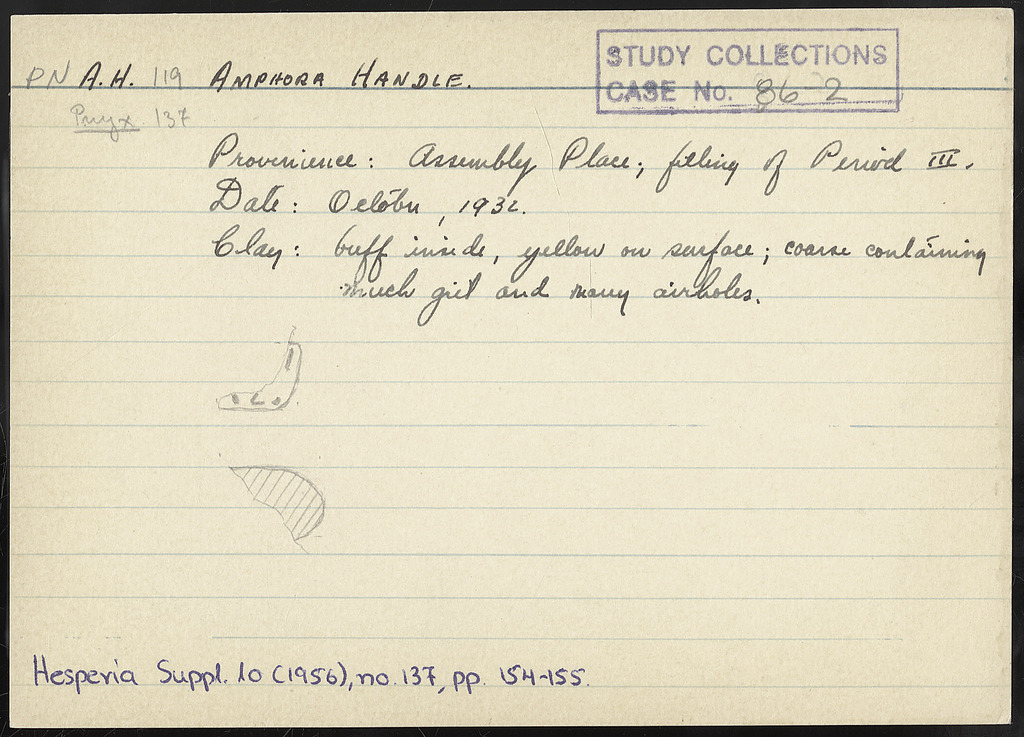 PN A.H. 119 AMPHORA HANDLE.
STUDY COLLECTIONS
CASE No. 86-2
Pnyx 137
Provenience: Assembly Place; filling of Period III.
Date: October, 1932.
Clay: buff inside, yellow on surface; coarse containing
much grit and many airholes.
Hesperia Suppl. 10 (1956), no. 137, pp. 154-155.